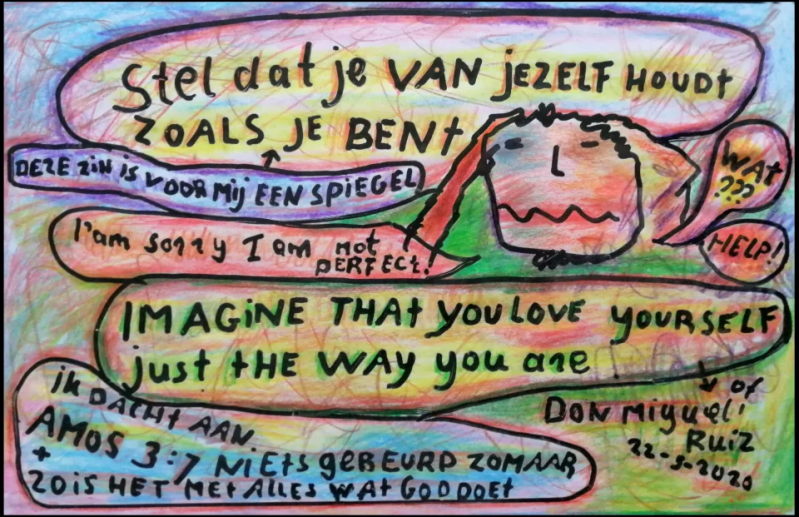 Stel dat je VAN jEZELF HOUDt
ZOALS JE BENt
DEZE ZiN iS VOOR Mij EEN SPIEGEL
WAt
???
I'am sorry I am not
PERFECt!
HELP!
IMAGiNE THAt YOU LOVE YOURSELF
just tHE WAY you are
of
DON Miguel!
RUiZ
22-5-2020
ik DACHt AAN
AMOS 3:7 NiEtS gEBEURD ZOMAAR
+
ZO iS HET MEt ALLES WAt GOD DOEt